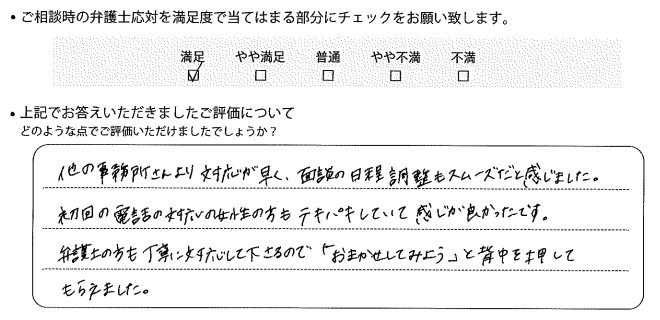 • ご相談時の弁護士応対を満足度で当てはまる部分にチェックをお願い致します。
満足 やや満足 普通 やや不満 不満
☑ □ □ □ □
• 上記でお答えいただきましたご評価について
どのような点でご評価いただけましたでしょうか？
他の事務所さんより対応が早く、面談の日程調整もスムーズだと感じました。
初回の電話の対応の女性の方もテキパキしていて感じが良かったです。
弁護士の方も丁寧に対応して下さるので「おまかせしてみよう」と背中を押して
もらえました。